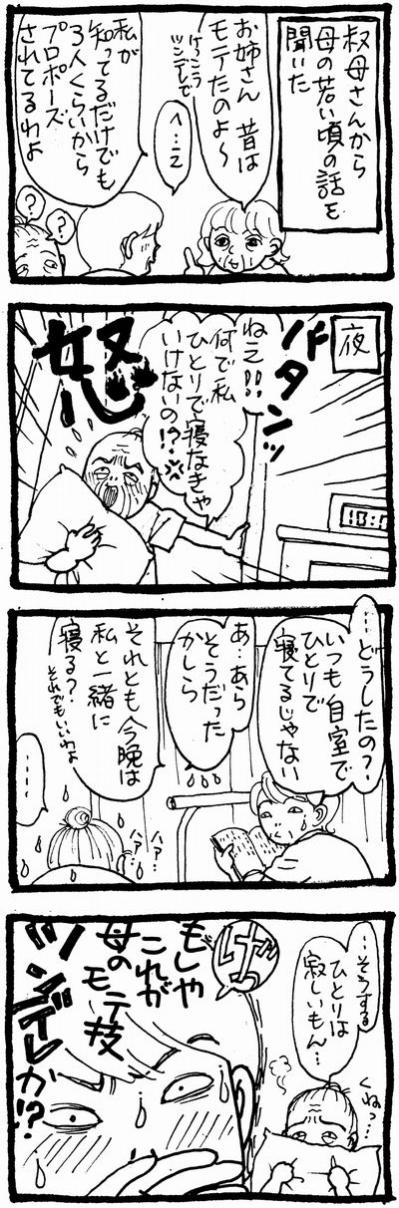 叔母さんから
母の若い頃の話を
聞いた
お姉さん 昔は
モテたのよ〜
けっこう
ツンデレで
へ…え
私が
知ってるだけでも
3人くらいから
プロポーズ
されてるわよ
?
?
夜
バタンッ
ねえ!!
何で私
ひとりで寝なきゃ
いけないの!?
怒
18:1
…どうしたの?
いつも自室で
ひとりで
寝てるじゃない
あ…あら
そうだった
かしら
それとも今晩は
私と一緒に
寝る?
それでもいいわよ
…
ハァ…
ハァ…
…そうする
ひとりは
寂しいもん…
くねっ…
はっ
もしや
これが
母の
モテ技
ツンデレか!?